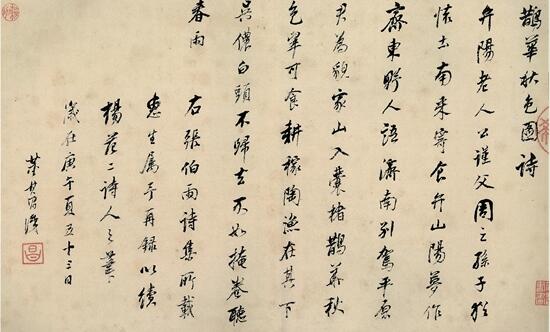 鵲華秋色圖詩
弁陽老人公謹父周之孫子猶
懷土南來寄食弁山陽夢作
齊東野人語濟南別駕平原
君為貌家山入囊楮鵲華秋
色翠可食耕稼陶漁在其下
吳儂白頭不歸去不如掩卷聽
春雨
右張伯雨詩集所載
惠生屬予再錄以續
楊范二詩人之筆
歲在庚午夏五十三日
董其昌識
昌